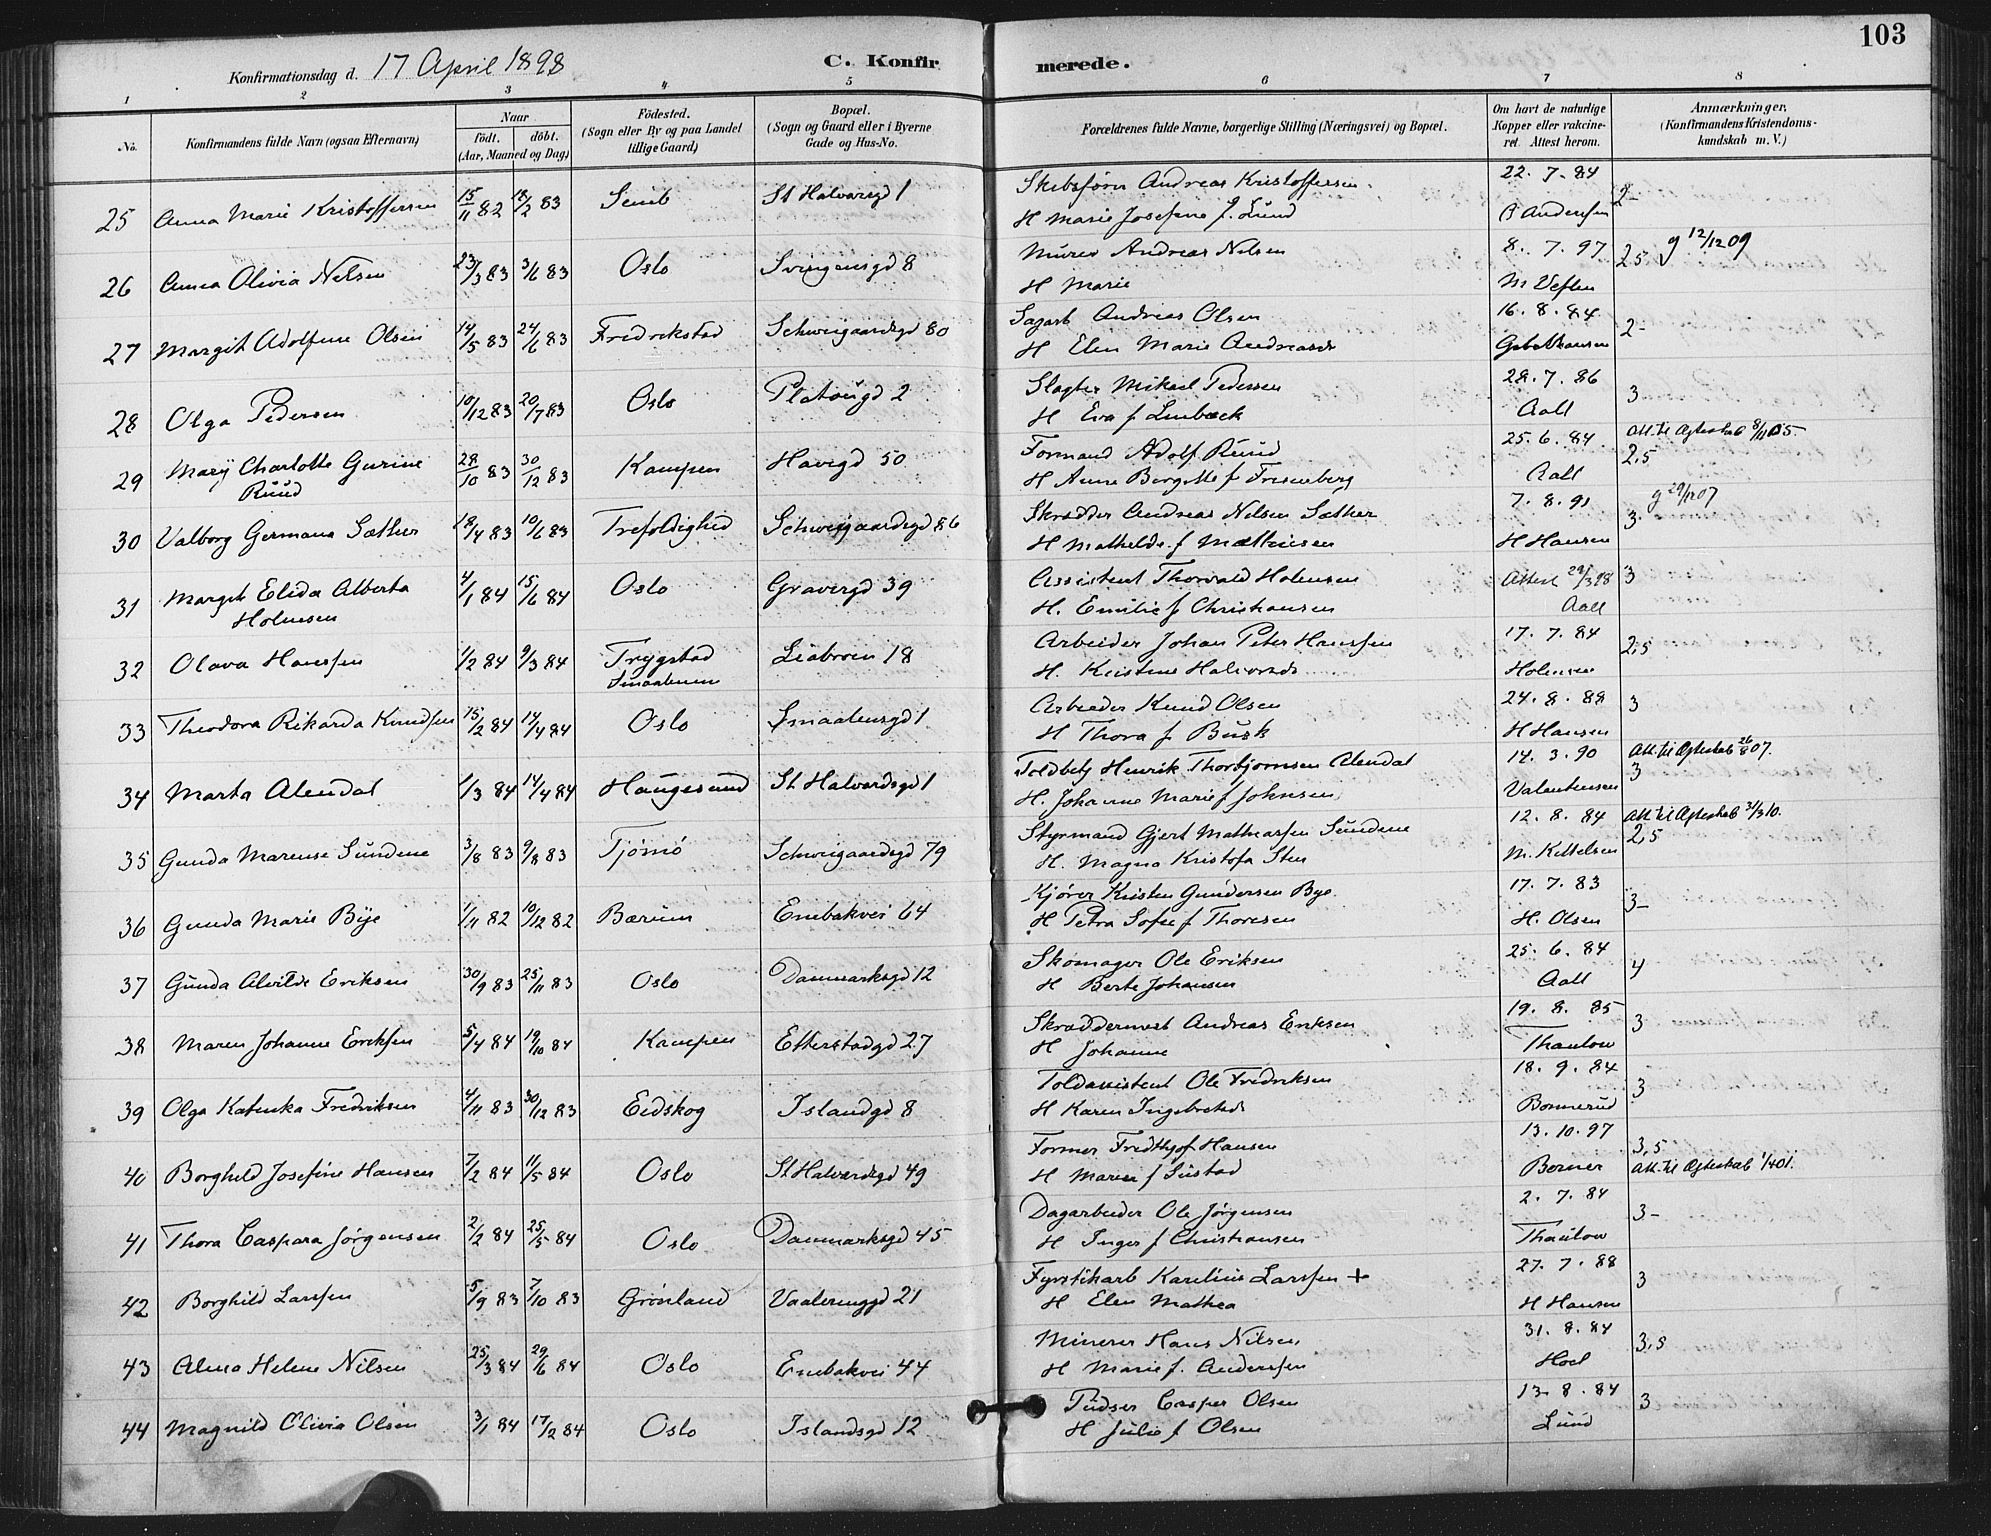 103
Konfirmationsdag d. 17 April 1898 C. Konfirmerede.
1 2 3 4 5 6 7 8
No. Konfirmandens fulde Navn (ogsaa Efternavn) Naar födt. döbt. (Aar, Maaned og Dag) Födested. (Sogn eller By og paa Landet tillige Gaard) Bopæl. (Sogn og Gaard eller i Byerne Gade og Hus-No. Forældrenes fulde Navne, borgerlige Stilling (Næringsvei) og Bopæl. Om havt de naturlige Kopper eller vakcineret. Attest herom. Anmærkninger. (Konfirmandens Kristendomskundskab m. V.)
25 Anna Marie Kristoffersen 15/11 82 18/2 83 Sem St Halvardsgd 1 Andreas Kristoffersen 22. 7. 84 2-
H Marie Josefine f. Lund Andersen
26 Anna Olivia Nelsen 23/3 83 3/6 83 Oslo Svingensgd 8 Murer Andreas Nelsen 8. 7. 97 2,5 g 12/12 09
H Marie
27 Margit Adolfine Olsen 14/5 83 24/6 83 Fredrikstad Schweigaardsgd 80 Sagarb Andreas Olsen 16. 8. 84 2-
H Elen Marie Andreasd
28 Olga Pedersen 10/12 83 20/7 83 Oslo Platougd 2 Slagter Mikael Pedersen 28. 7. 86 3
H Eva f Lindbæck Aall
29 Mary Charlotte Gurine Ruud 28/10 83 30/12 83 Kampen Havegd 50 Formand Adolf Ruud 25. 6. 84 2,5 Att. til Ægteskab 8/11 05.
H Anne Borgitte f Frisenberg Aall
30 Valborg Germana Sæther 18/4 83 10/6 83 Trefoldighed Schweigaardsgd 86 Skrædder Andreas Nilsen Sæther 7. 8. 91 3 g 29/12 07
H Mathilde f Mathiesen H Hansen
31 Margit Elida Alberta Holmsen 4/1 84 15/6 84 Oslo Gravergd 39 Assistent Thorvald Holmsen Attest 29/3 98 3
H. Emilie f Christiansen Aall
32 Olava Hanssen 1/2 84 9/3 84 Trygstad Smaalenene Liabroen 18 Arbeider Johan Peter Hanssen 17. 7. 84 2,5
H. Kristine Halvorsd
33 Theodora Rikarda Knudsen 15/2 84 14/4 84 Oslo Smaalensgd 1 Arbeider Knud Olsen 24. 8. 88 3
H Thora f Busk H Hansen
34 Marta Alendal 1/3 84 14/4 84 Haugesund St Halvardsgd 1 Toldbetj Henrik Thorbjørnsen Alendal 14. 3. 90 3 Att. til Ægteskab 26/8 07.
H. Johanne Marie f Johnsen Valentinsen
35 Gunda Marense Sundene 3/8 83 9/8 83 Tjömö Schweigaardsgd 79 Styrmand Gjert Mathiassen Sundene 12. 8. 84 2,5 Att til Ægteskab 31/3 10.
H. Magna Kristofa Sten M. Kittelsen
36 Gunda Marie Bye 1/11 82 10/12 82 Bærum Enebakvei 64 Kjører Kristen Gundersen Bye 17. 7. 83 3-
H Petra Sofie f Thoresen H. Olsen
37 Gunda Alvilde Eriksen 30/9 83 25/11 83 Oslo Danmarksgd 12 Skomager Ole Eriksen 25. 6. 84 4
H Berte Johansen Aall
38 Maren Johanne Eriksen 5/4 84 19/10 84 Kampen Etterstadgd 27 Skræddermest Andreas Eriksen 19. 8. 85 3
H Johanne Thaulow
39 Olga Katinka Fredriksen 4/11 83 30/12 83 Eidskog Islandgd 8 Toldassistent Ole Fredriksen 18. 9. 84 3
H Karen Ingebretsd Bonnerud
40 Borghild Josefine Hansen 7/2 84 11/5 84 Oslo St Halvardsgd 49 Former Fredthjof Hansen 13. 10. 97 3,5
H Maren f Sustad Borner Att. til Ægteskab 1/4 01.
41 Thora Caspara Jørgensen 2/2 84 25/5 84 Oslo Danmarksgd 45 Dagarbeider Ole Jørgensen 2. 7. 84 3-
H Inger f Christiansen Thaulow
42 Borghild Larssen 5/9 83 7/10 83 Grönland Vaalerenggd 21 Fyrstikarb Karelius Larssen + 27. 7. 88 3
H Elen Mathea H Hansen
43 Alma Helene Nilsen 25/3 84 29/6 84 Oslo Enebakvei 44 Minerer Hans Nilsen 31. 8. 84 3,5
H Marie f. Anderssen Hoel
44 Magnild Olivia Olsen 3/1 84 17/2 84 Oslo Islandsgd 12 Pudser Casper Olsen 13. 8. 84 3
H Julie f Olsen Lund